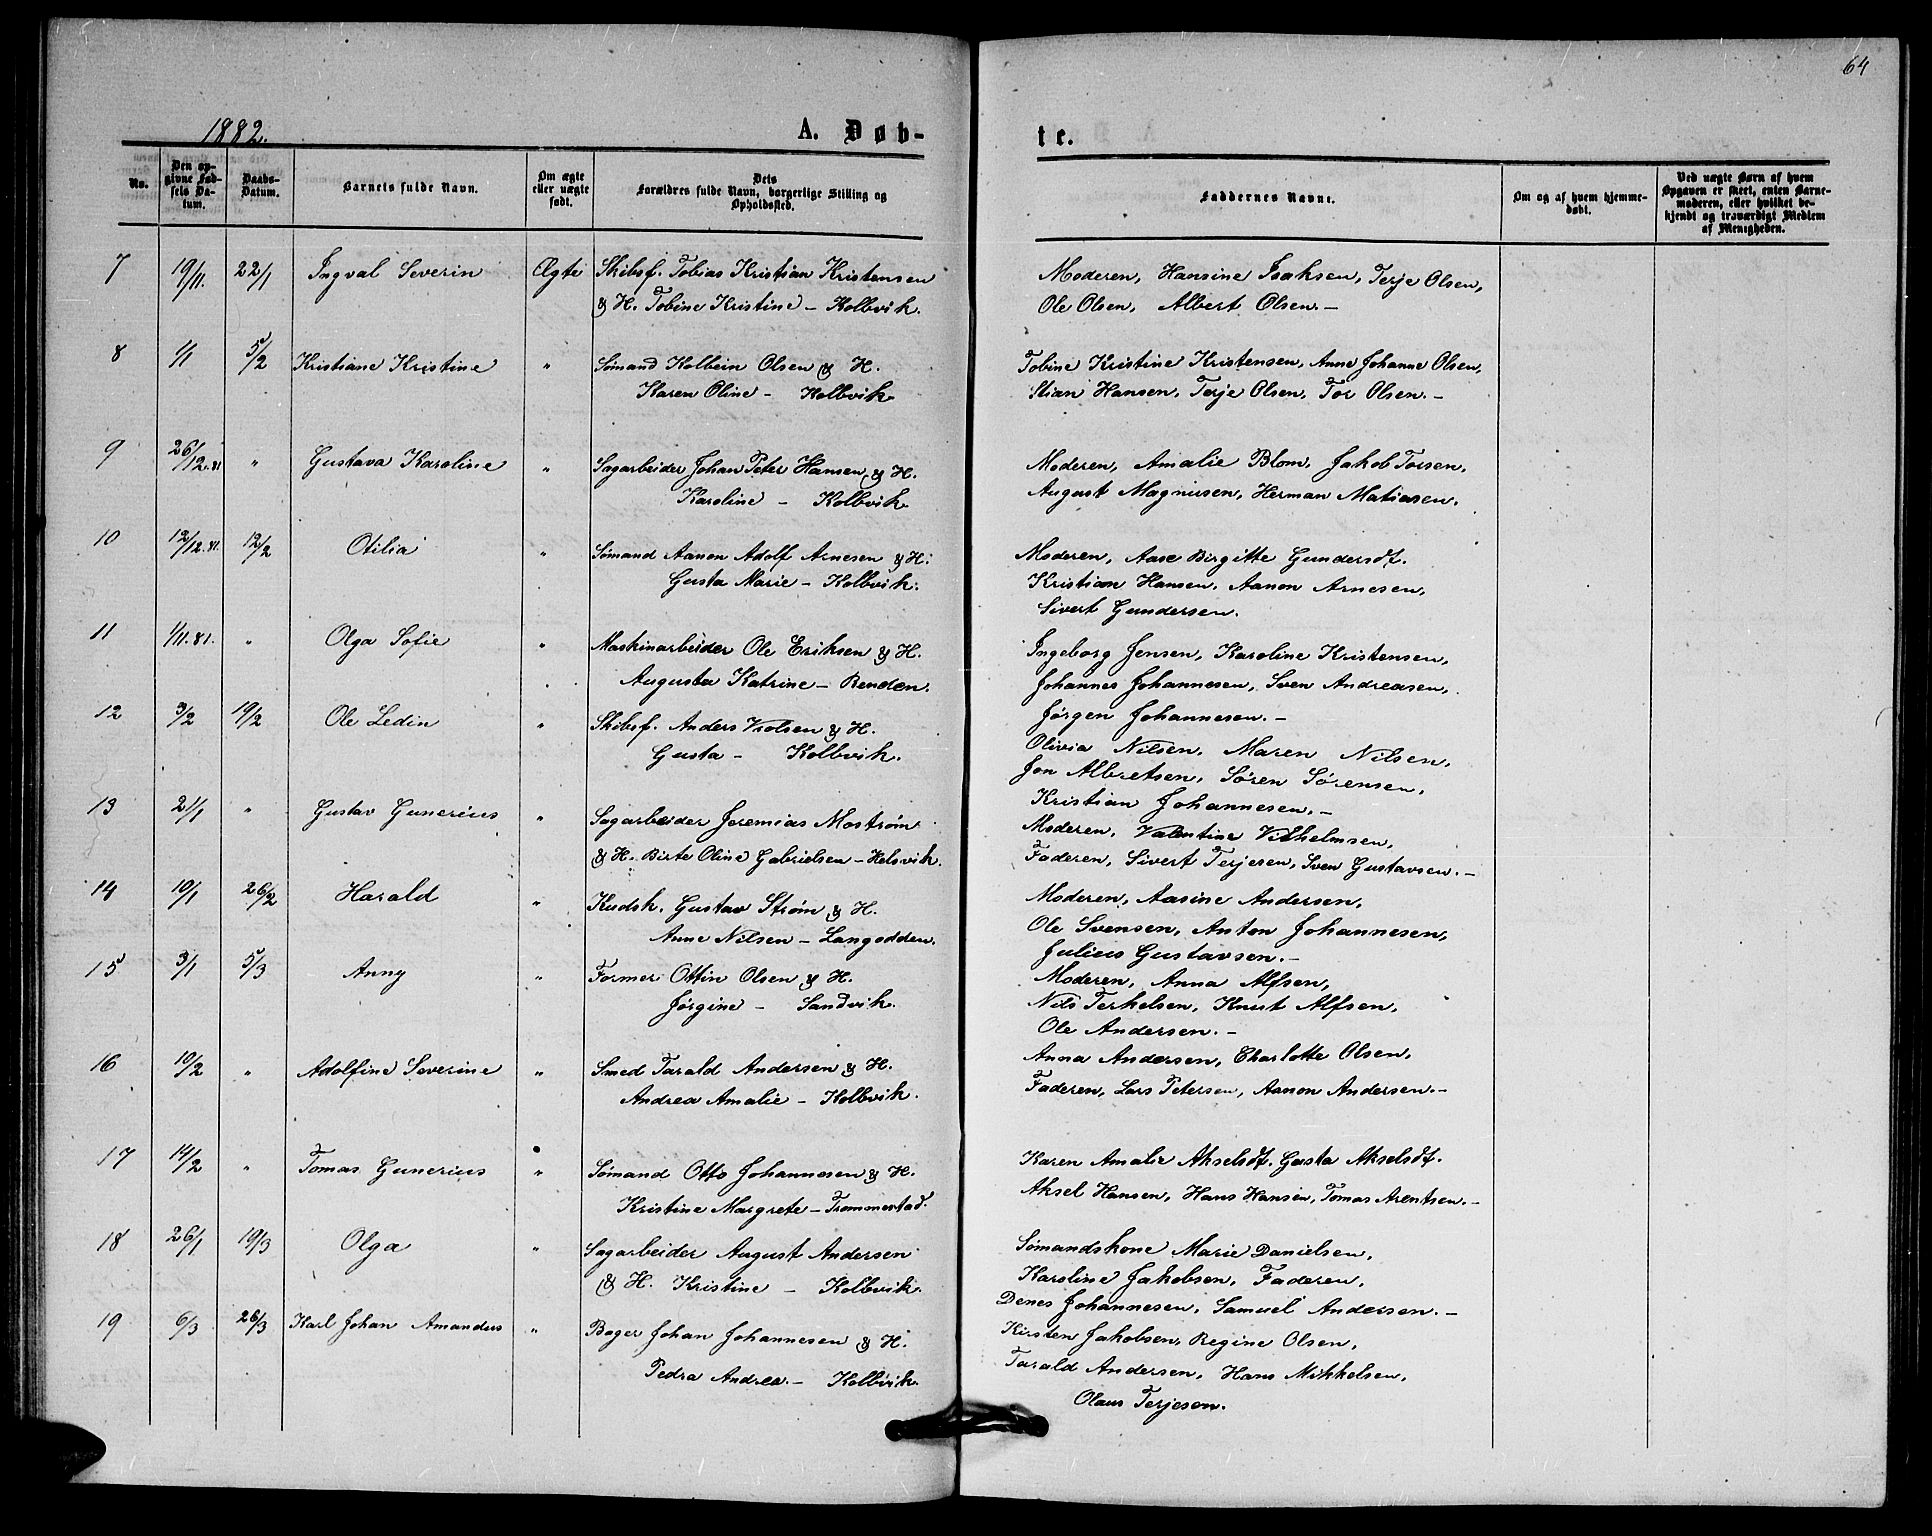 64
1882.
A. Døb-
te.
No.
Den op-
givne Fød-
sels Da-
tum.
Daabs-
Datum.
Barnets fulde Navn.
Om ægte
eller uægte
født.
Dets
Forældres fulde Navn, borgerlige Stilling og
Opholdssted.
Faddernes Navne.
Om og af hvem hjemme-
døbt.
Ved uægte Børn af hvem
Opgaven er skeet, enten Barne-
moderen, eller hvilket be-
kjendt og troværdigt Medlem
af Menigheden.
7 19/11. 22/1 Ingval Severin Ægte Skibsf. Tobias Kristian Kristensen
& H. Tobine Kristine – Kolbvik.
Moderen, Hansine Isaksen, Terje Olsen,
Ole Olsen, Albert Olsen. –
8 1/1 5/2 Kristiane Kristine " Sømand Kolbein Olsen & H.
Karen Oline – Kolbvik.
Tobine Kristine Kristensen, Anne Johanne Olsen,
Stian Hansen, Terje Olsen, Tor Olsen. –
9 26/12.81 " Gustava Karoline " Sagarbeider Johan Peter Hansen & H.
Karoline – Kolbvik
Moderen, Amalie Blom, Jakob Torsen,
August Magnusen, Herman Matiasen.
10 12/12.81. 12/2 Otilia " Sømand Aanon Adolf Arnesen & H.
Gusta Marie – Kolbvik.
Moderen, Aase Birgitte Gundersdt.
Kristian Hansen, Aanon Arnesen,
Sivert Gundersen.
11 1/11.81. " Olga Sofie " Maskinarbeider Ole Eriksen & H.
Augusta Katrine – Renden.
Ingeborg Jensen, Karoline Kristensen,
Johannes Johannesen, Sven Andreasen,
Jørgen Johannesen. –
12 3/2 19/2 Ole Ledin " Skibsf. Anders Violsen & H.
Gusta – Kolbvik.
Olivia Nilsen, Maren Nilsen,
Jon Albretsen, Søren Sørensen,
Kristian Johannesen. –
13 21/1 " Gustav Gunerius " Sagarbeider Jeremias Mostrøm
& H. Birte Oline Gabrielsen – Kelsvik.
Moderen, Valentine Vilhelmsen,
Faderen, Sivert Terjesen, Sven Gustavsen. –
14 10/1 26/2 Harald " Kudsk. Gustav Strøm & H.
Anne Nilsen – Langodden.
Moderen, Aasine Andersen,
Ole Svensen, Anton Johannesen,
Julius Gustavsen. –
15 3/1 5/3 Anny " Former Ottin Olsen & H.
Jørgine – Sandvik.
Moderen, Anna Alfsen,
Nils Terkelsen, Knut Alfsen,
Ole Andersen. –
16 10/2 " Adolfine Severine " Smed Tarald Andersen & H.
Andrea Amalie – Kolbvik.
Anna Andersen, Charlotte Olsen,
Faderen, Lars Petersen, Aanon Andersen. –
17 14/2 " Tomas Gunerius " Sømand Otto Johannesen & H.
Kristine Margrete – Trommestad.
Karen Amalie Akselsdt. Gusta Akselsdt.
Aksel Hansen, Hans Hansen, Tomas Arentsen. –
18 26/1 19/3 Olga " Sagarbeider August Andersen
& H. Kristine – Kolbvik.
Sømandskone Marie Danielsen,
Karoline Jakobsen, Faderen,
Denes Johannesen, Samuel Andersen. –
19 6/3 26/3 Karl Johan Amanders " Bager Johan Johannesen & H.
Pedra Andrea. – Kolbvik.
Kirsten Jakobsen, Regine Olsen,
Tarald Andersen, Hans Mikkelsen,
Olaus Terjesen.